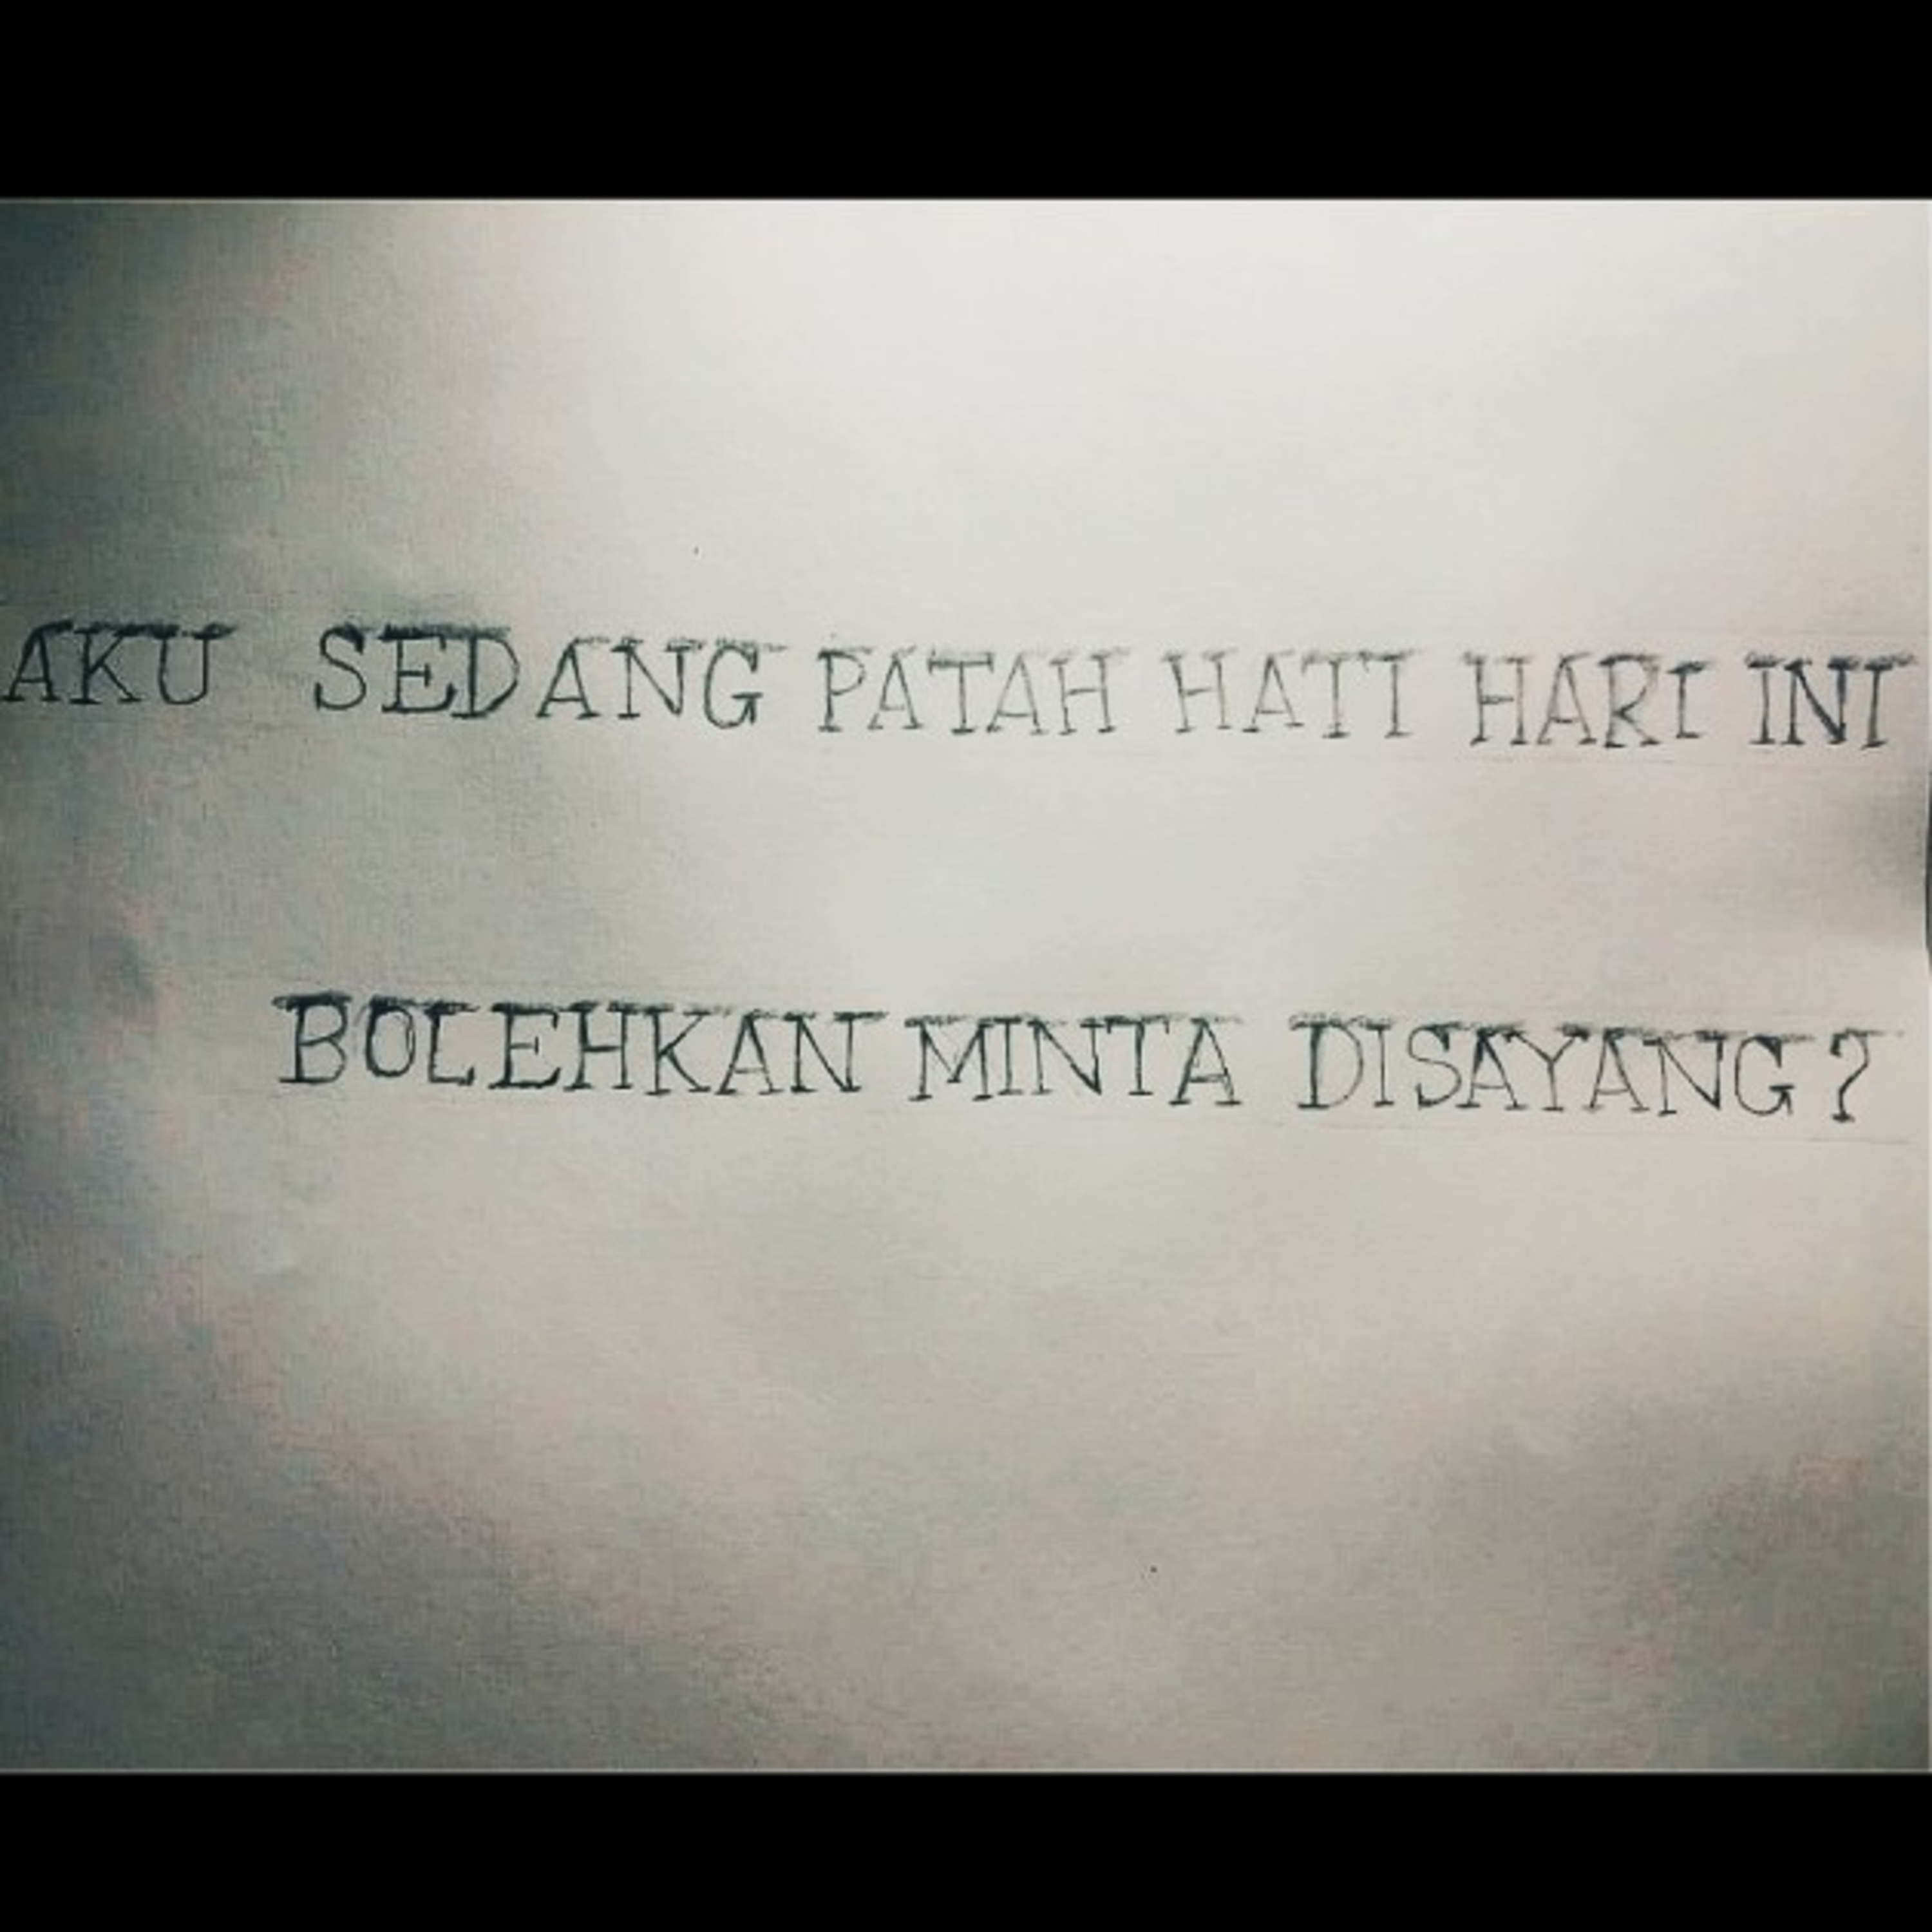 AKU SEDANG PATAH HATI HARI INI
BOLEHKAN MINTA DISAYANG?